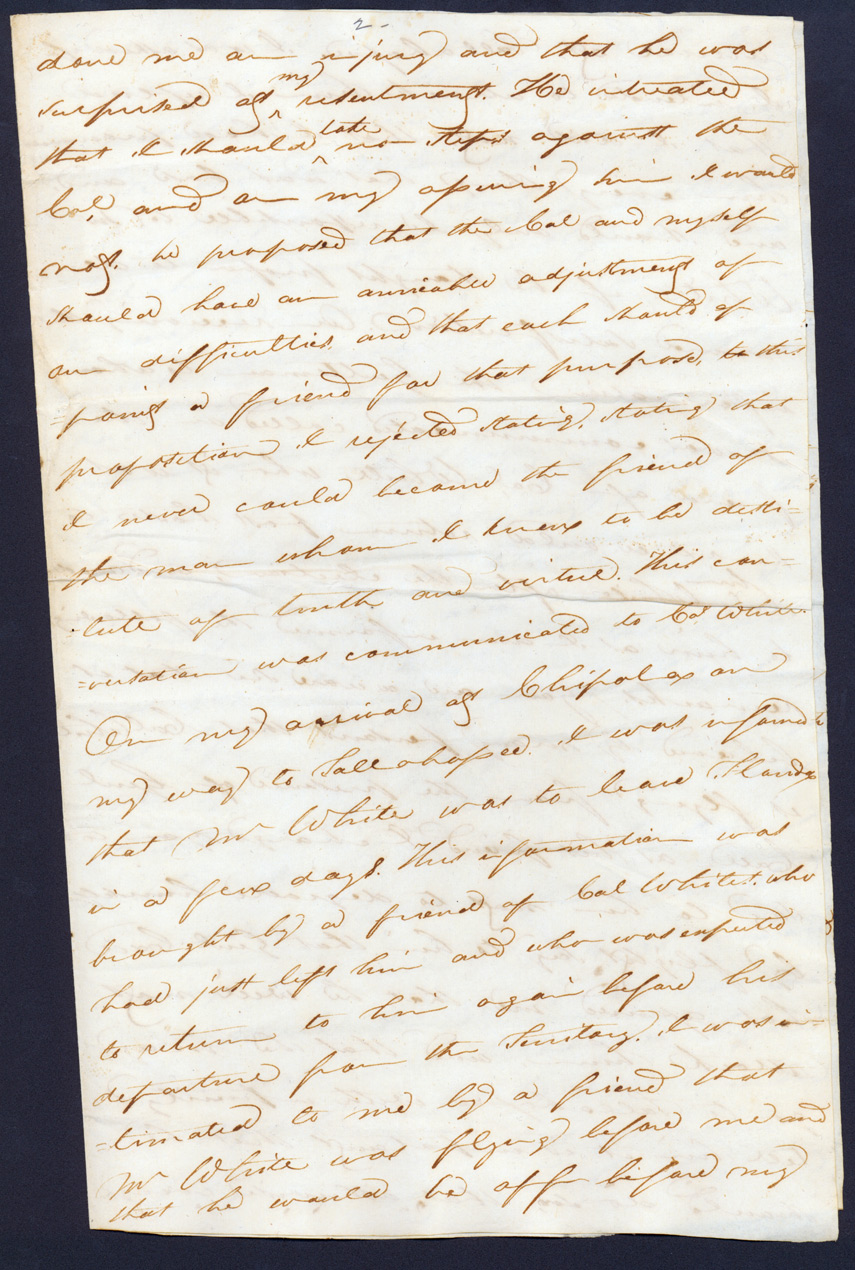 2-
done me an injury and that he was
surprised at my resentment. He intreated
that I should take no steps against the
Col, and on my assuring him I would
not. he proposed that the Col and myself
should have an amicable adjustment of
our difficulties and that each should ap
=point a friend for that purpose. to this
proposition I rejected stating, stating that
I never could become the friend of
the man whom I knew to be desti=
tute of truth and virtue. This con=
=versation was communicated to Col White.
On my arrival at Chipola on
my way to Tallahassee. I was informed
that Mr White was to leave Florida
in a few days. This information was
brought by a friend of Col White's. who
had just left him and who was expected
to return to him again before his
departure from the Territory. I was in=
=timated to me by a friend that
Mr White was flying before me and
that he would be off before my